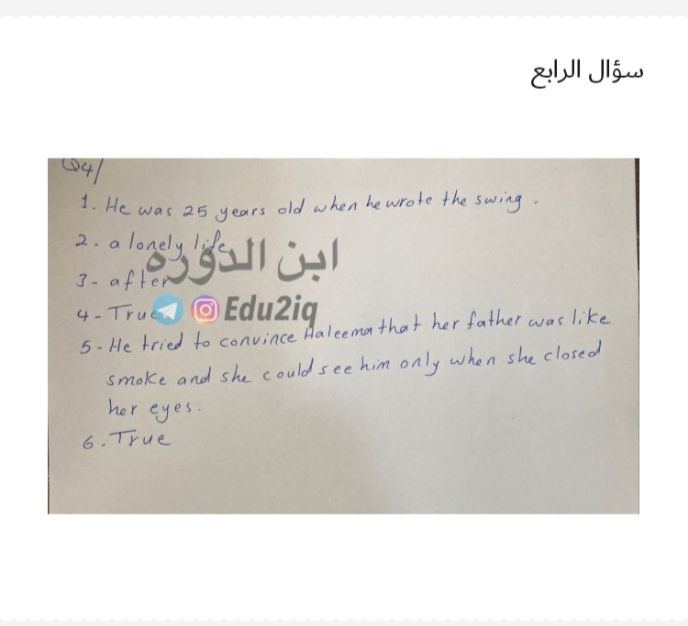 سؤال الرابع
Q4/
1. He was 25 years old when he wrote the swing.
2. a lonely life
3- after
4- True
ابن الدورة
Edu2iq
5- He tried to convince Haleema that her father was like
smoke and she could see him only when she closed
her eyes.
6. True